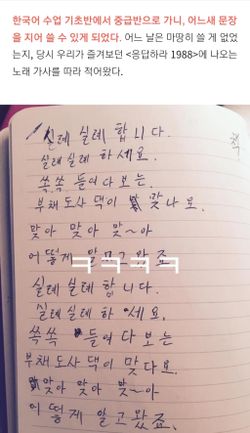 한국어 수업 기초반에서 중급반으로 가니, 어느새 문장
을 지어 쓸 수 있게 되었다. 어느 날은 마땅히 쓸 게 없었
는지, 당시 우리가 즐겨보던 <응답하라 1988>에 나오는
노래 가사를 따라 적어왔다.
실례 실례 합니다.
실례 실례 하세요.
쏙쏙 들여다 보는
부채도사 댁이 맞나요.
맞아 맞아 맞~아
어떻게 알고 왔죠
ㅋㅋㅋㅋ
실례 실례 합니다.
실례 실례 하세요.
쏙쏙 들여다 보는
부채도사 댁이 맞다요.
맞아 맞아 맞~아
어떻게 알고 왔죠.